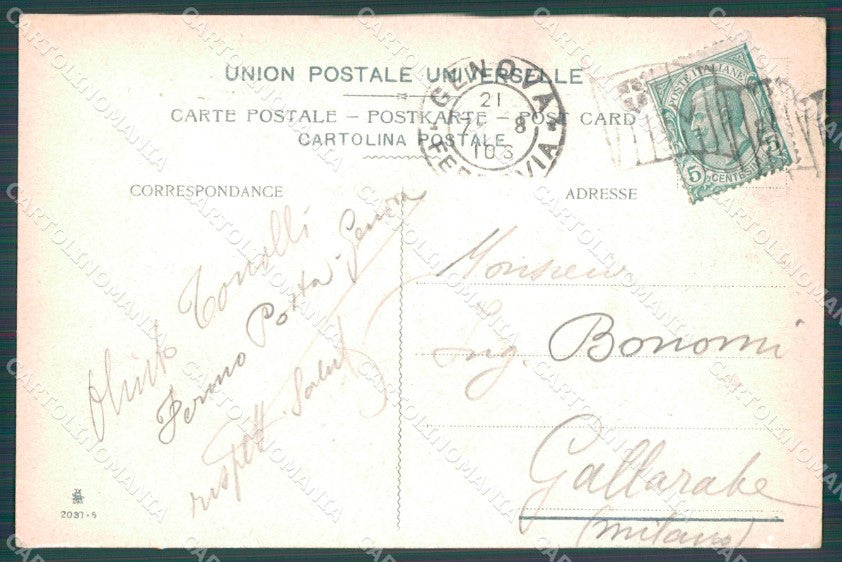 UNION POSTALE UNIVERSELLE
CARTE POSTALE – POSTKARTE – POST CARD
CARTOLINA POSTALE
GENOVA
21
8
FERROVIA
POSTE ITALIANE
5 CENTES 5
CORRESPONDANCE
ADRESSE
Tonolli
Fermo Posta - Genova
rispett. Saluti
Monsieur
Ing. Bonomi
Gallarate
(Milano)
2037-5
CARTOLINOMANIA